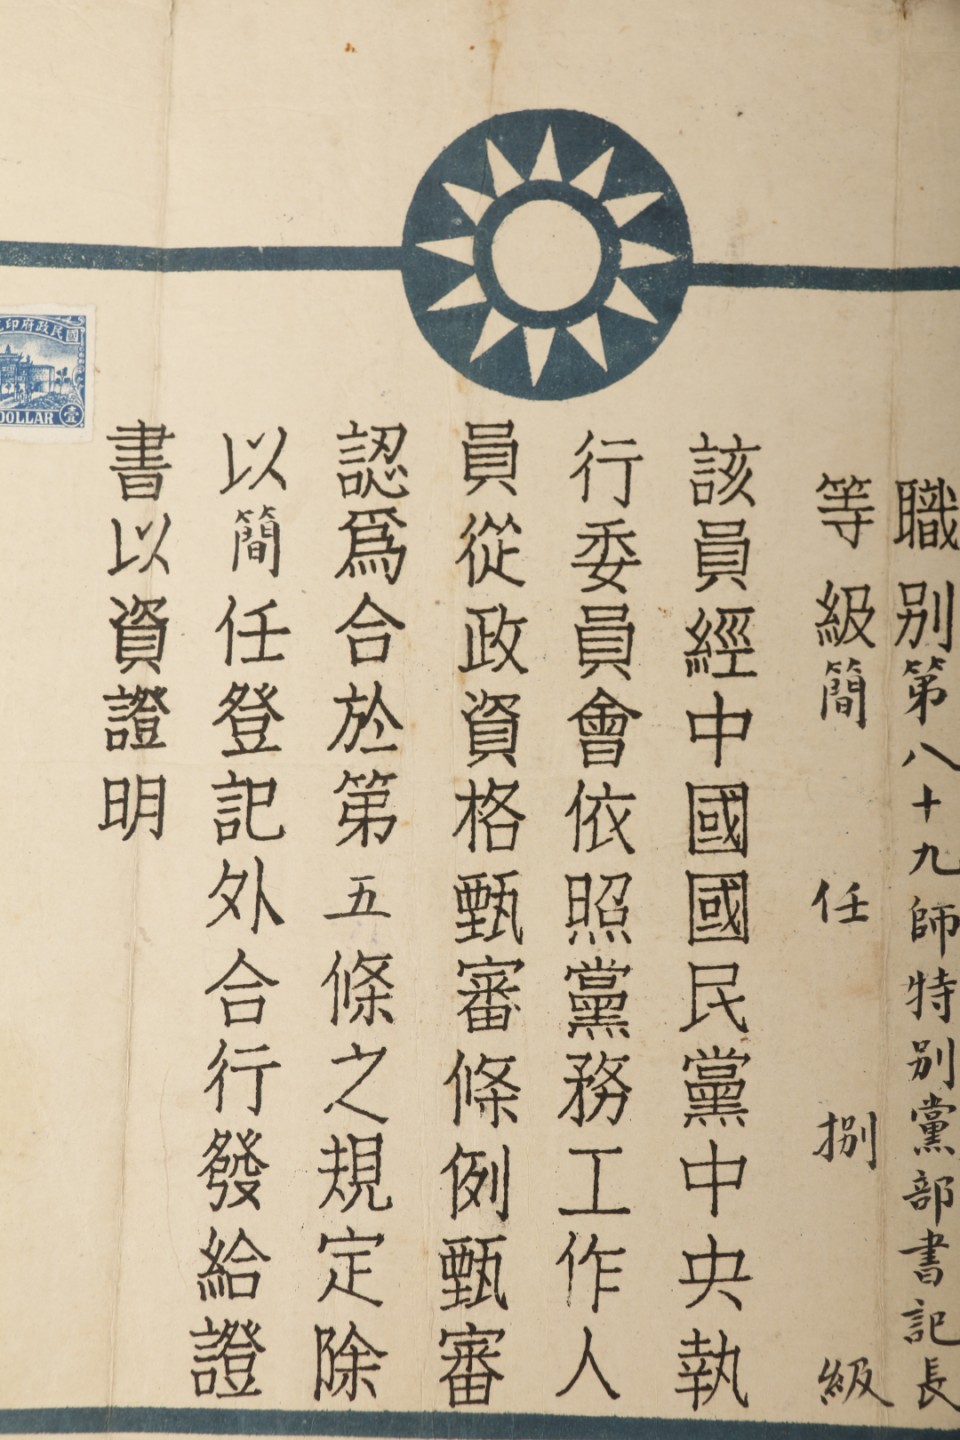 職別第八十九師特別黨部書記長
等級簡任捌級
該員經中國國民黨中央執
行委員會依照黨務工作人
員從政資格甄審條例甄審
認爲合於第五條之規定除
以簡任登記外合行發給證
書以資證明
國民政府印
DOLLAR 壹